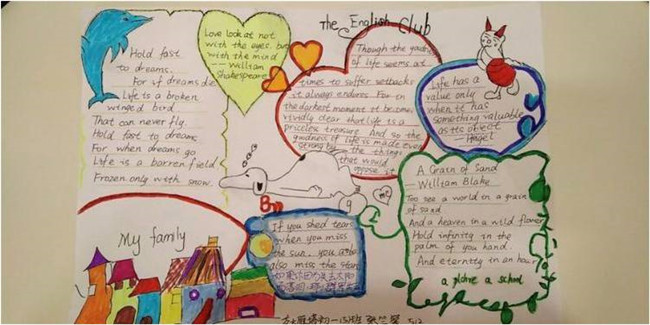 The English Club
Hold fast
to dreams
For if dreams die
Life is a broken
winged bird
That can never fly.
Hold fast to dreams
For when dreams go
Life is a barren field
Frozen only with snow.
Love look at not
with the eyes, but
with the mind
— William
Shakespeare
Though the
of life seems at
times to suffer setbacks
it always endures. For in
the darkest moment it become
vividly clear that life is a
priceless treasure. And so the
goodness of life is made even
strong by the things
that would
oppose it
Life has a
value only
when it has
something valuable
as its object
My family
If you shed tear
when you miss
the sun, you
also miss the stars
A Grain of Sand
— William Blake
Too see a world in a grain
of sand
And a heaven in a wild flower
Hold infinity in the
palm of you hand.
And eternity in an hour
a school